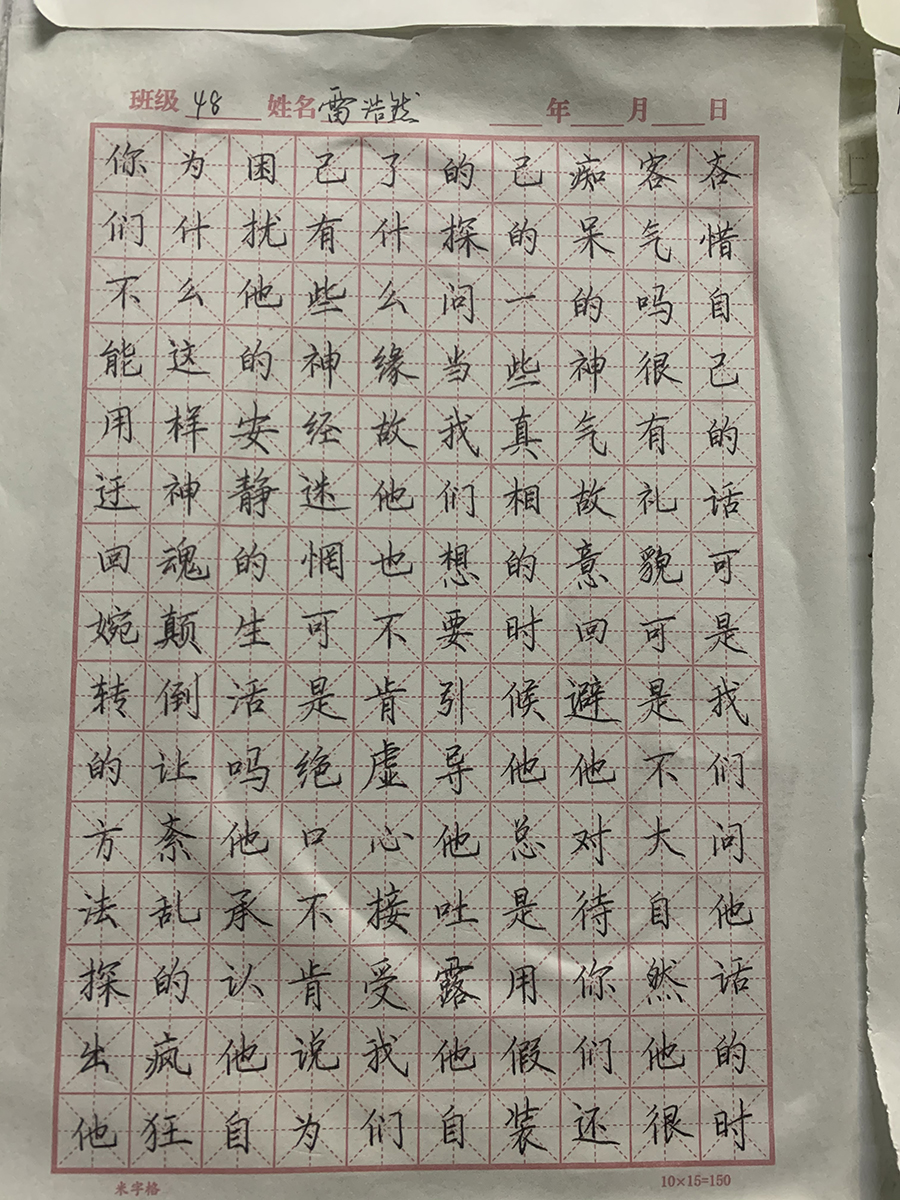 班级 48 姓名 雷浩然 年 月 日
你们不能用迂回婉转的方法探出他
为什么这样神魂颠倒让紊乱的疯狂
困扰他的安静的生活吗他承认他自
己有些神经迷惘可是绝口不肯说为
了什么缘故他也不肯虚心接受我们
的探问当我们想要引导他吐露他自
己的一些真相的时候他总是用假装
痴呆的神气故意回避他对待你们还
客气吗很有礼貌可是不大自然他很
吝惜自己的话可是我们问他话的时
米字格 10×15=150